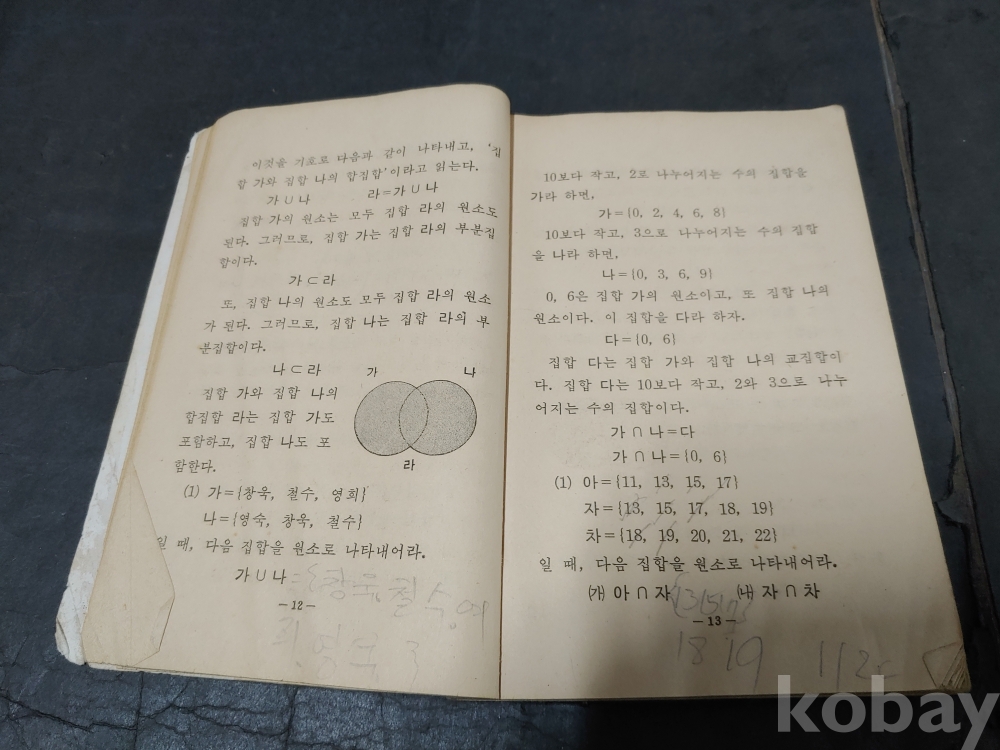 이것을 기호로 다음과 같이 나타내고, '집
합 가와 집합 나의 합집합'이라고 읽는다.
가∪나 라=가∪나
집합 가의 원소는 모두 집합 라의 원소도
된다. 그러므로, 집합 가는 집합 라의 부분집
합이다.
가⊂라
또, 집합 나의 원소도 모두 집합 라의 원소
가 된다. 그러므로, 집합 나는 집합 라의 부
분집합이다.
나⊂라
가 나
집합 가와 집합 나의
합집합 라는 집합 가도
포함하고, 집합 나도 포
함한다.
라
(1) 가={창욱, 철수, 영희}
나={영숙, 창욱, 철수}
일 때, 다음 집합을 원소로 나타내어라.
가∪나={창욱, 철수, 영
희, 영숙
-12-
10보다 작고, 2로 나누어지는 수의 집합을
가라 하면,
가={0, 2, 4, 6, 8}
10보다 작고, 3으로 나누어지는 수의 집합
을 나라 하면,
나={0, 3, 6, 9}
0, 6은 집합 가의 원소이고, 또 집합 나의
원소이다. 이 집합을 다라 하자.
다={0, 6}
집합 다는 집합 가와 집합 나의 교집합이
다. 집합 다는 10보다 작고, 2와 3으로 나누
어지는 수의 집합이다.
가∩나=다
가∩나={0, 6}
(1) 아={11, 13, 15, 17}
자={13, 15, 17, 18, 19}
차={18, 19, 20, 21, 22}
일 때, 다음 집합을 원소로 나타내어라.
㈎ 아∩자 {13 15 17} ㈏ 자∩차
-13-
18 19
kobay